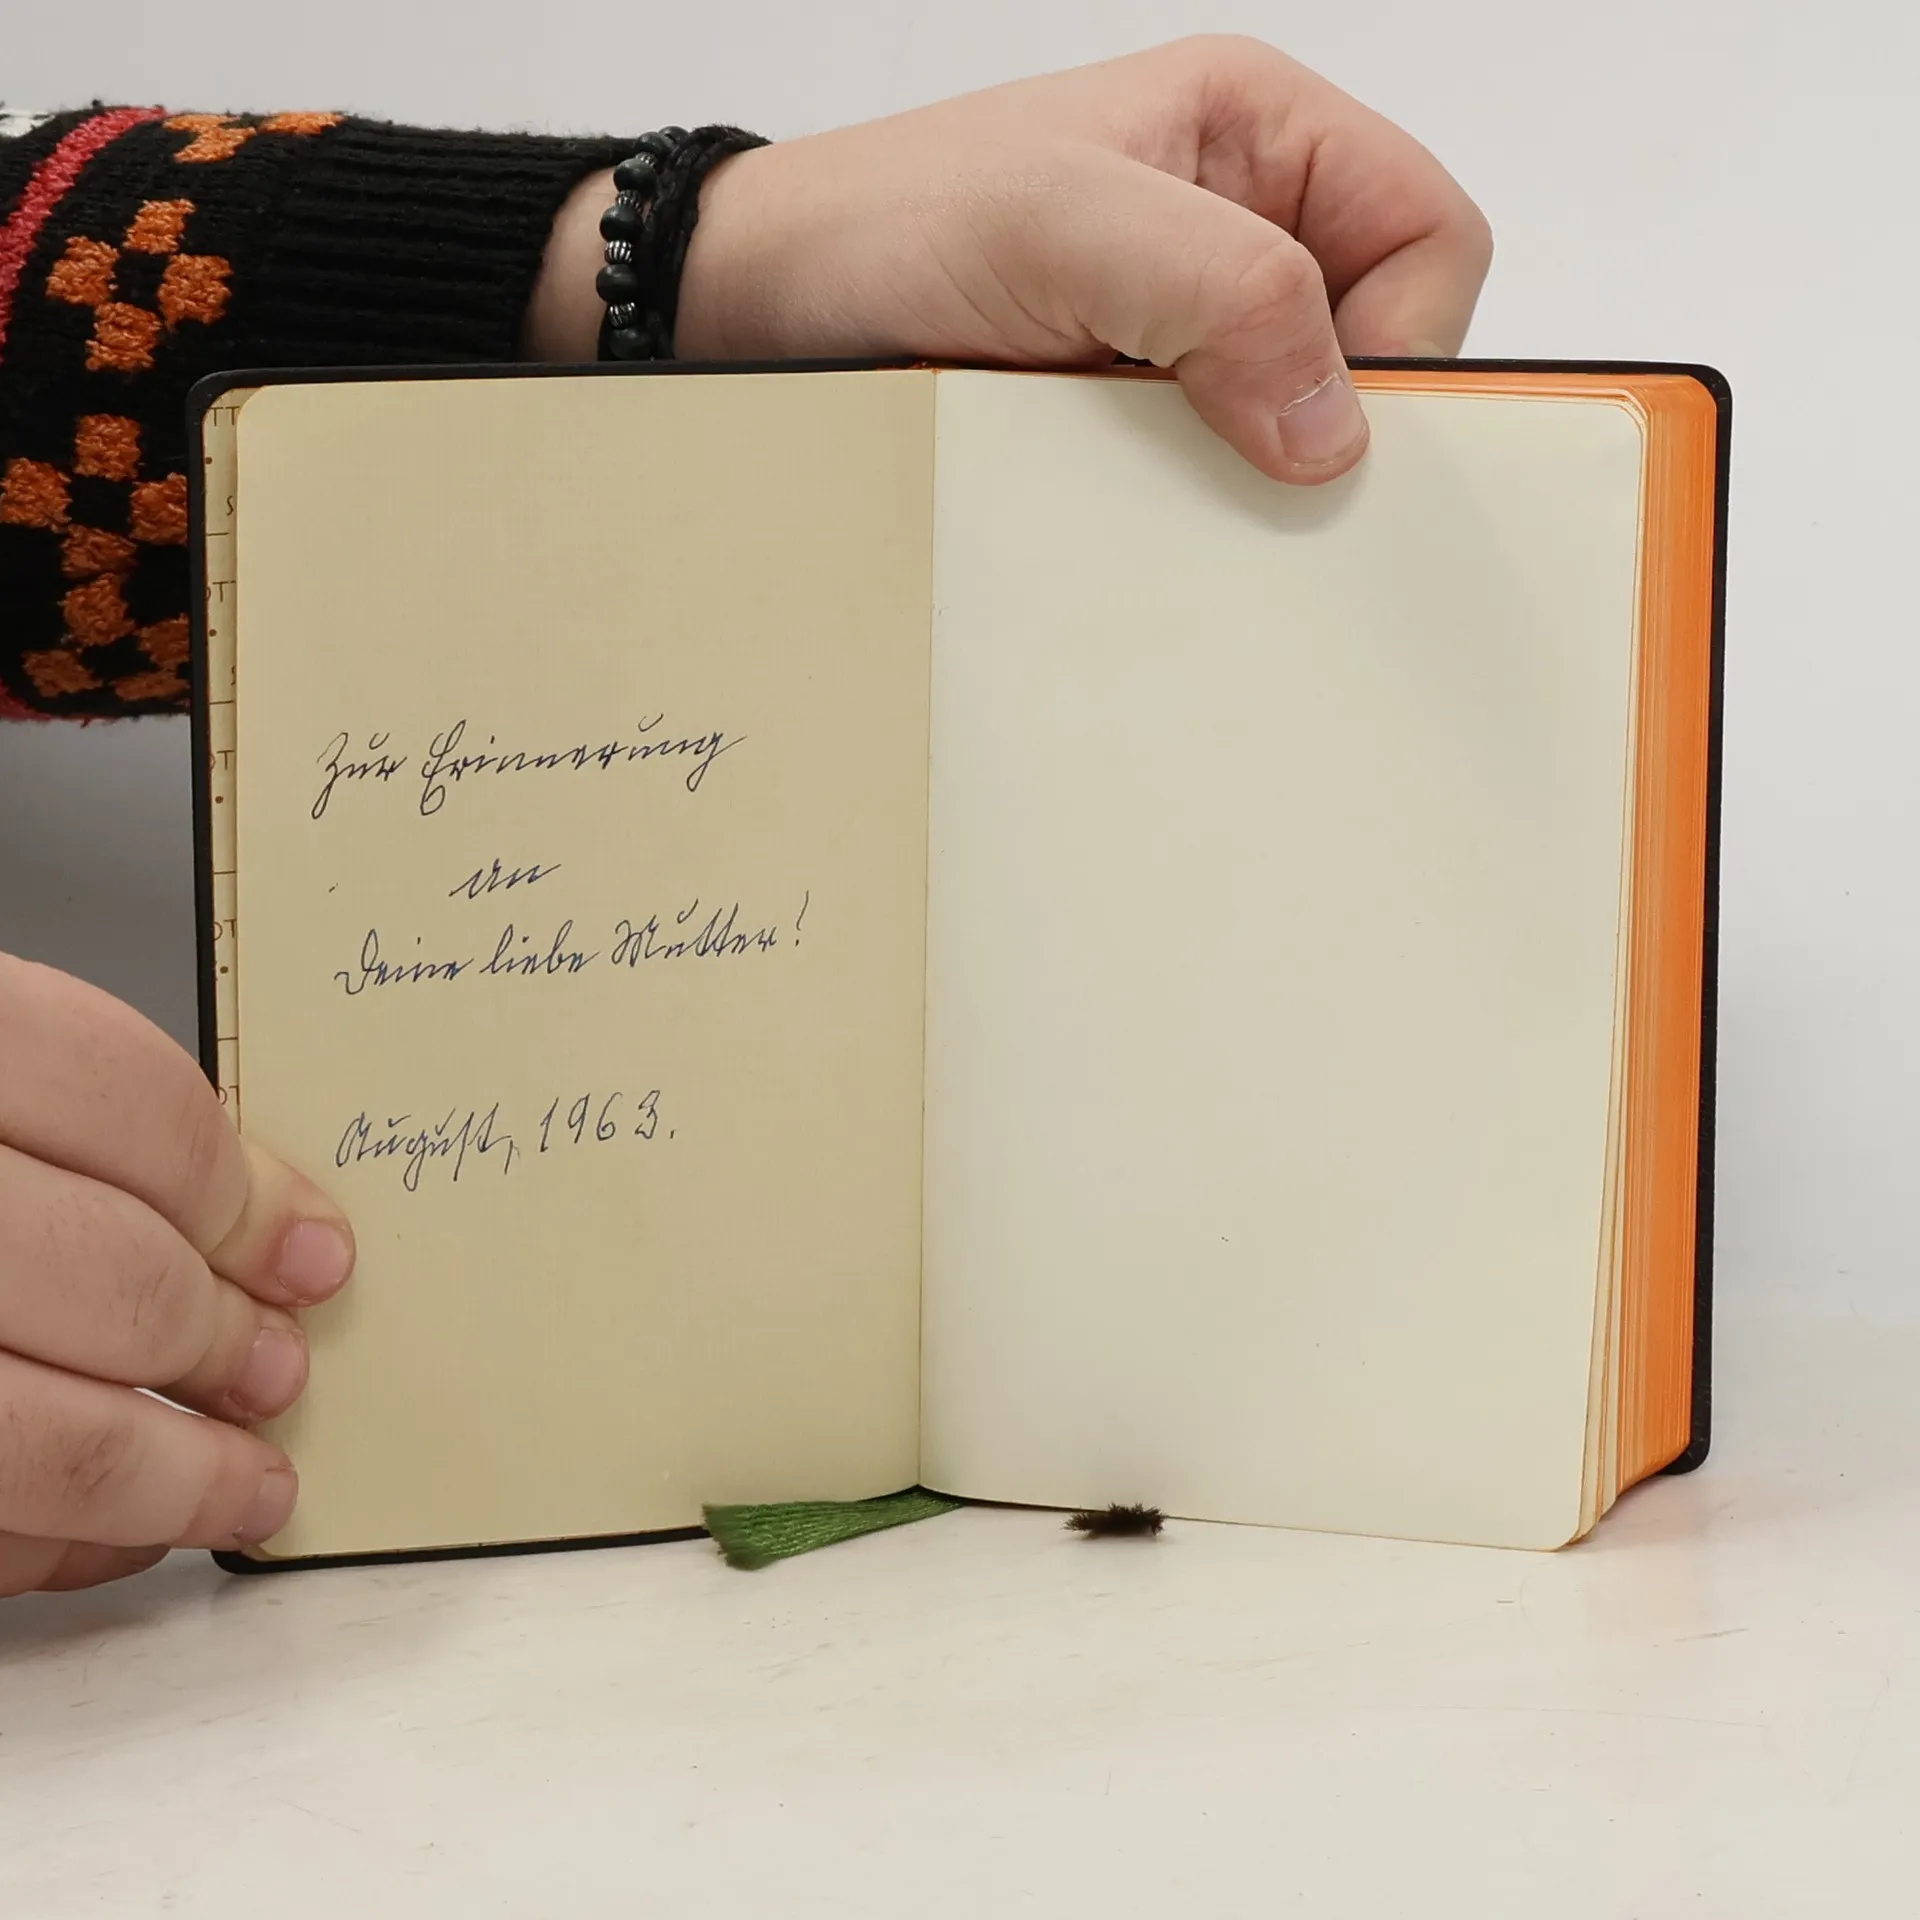 Zur Erinnerung
an
Deine liebe Mutter!
August, 1963.